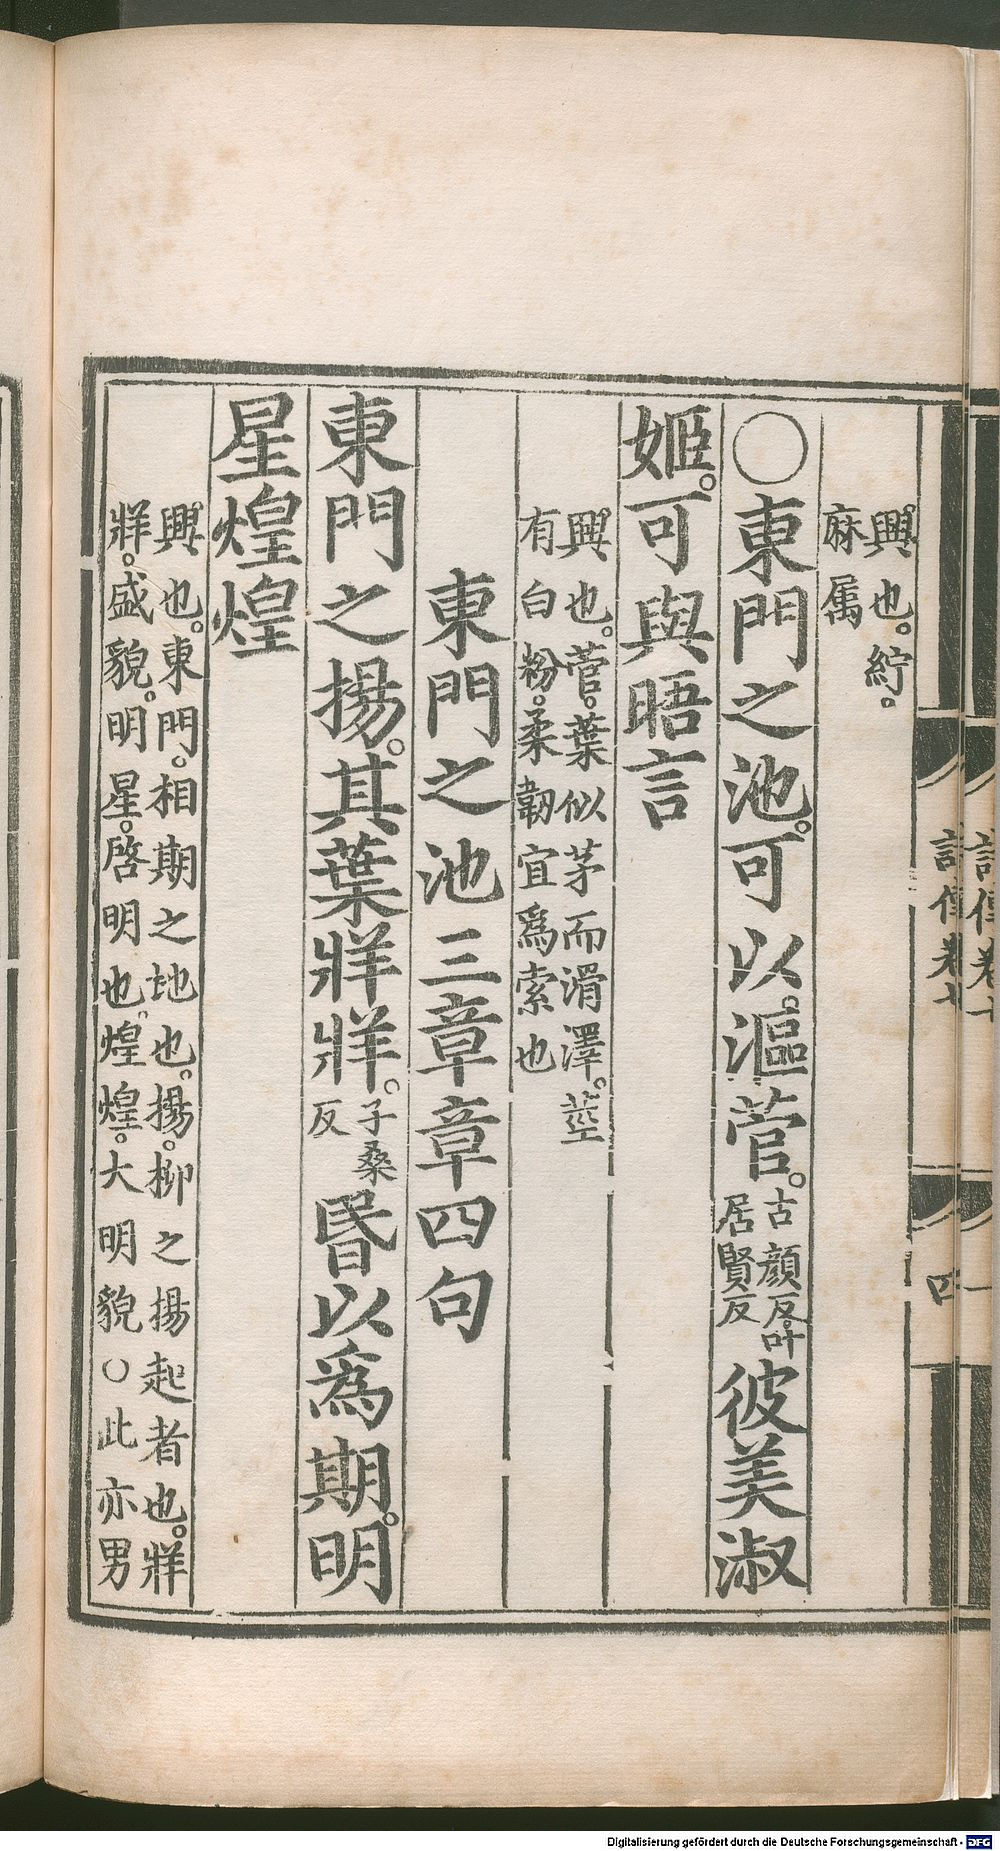 興也。紵。
麻屬
○東門之池。可以。漚菅。
古顔反。叶
居賢反
彼美淑
姬。可與晤言
興也。菅。葉似茅而滑澤。莖
有白粉。柔韌宜爲索也
東門之池三章章四句
東門之揚。其葉牂牂。
子桑
反
昬以爲期。明
星煌煌
興也。東門。相期之地也。揚。柳之揚起者也。牂
牂。盛貌。明星。啓明也。煌煌。大明貌○此亦男
四
Digitalisierung gefördert durch die Deutsche Forschungsgemeinschaft - DFG